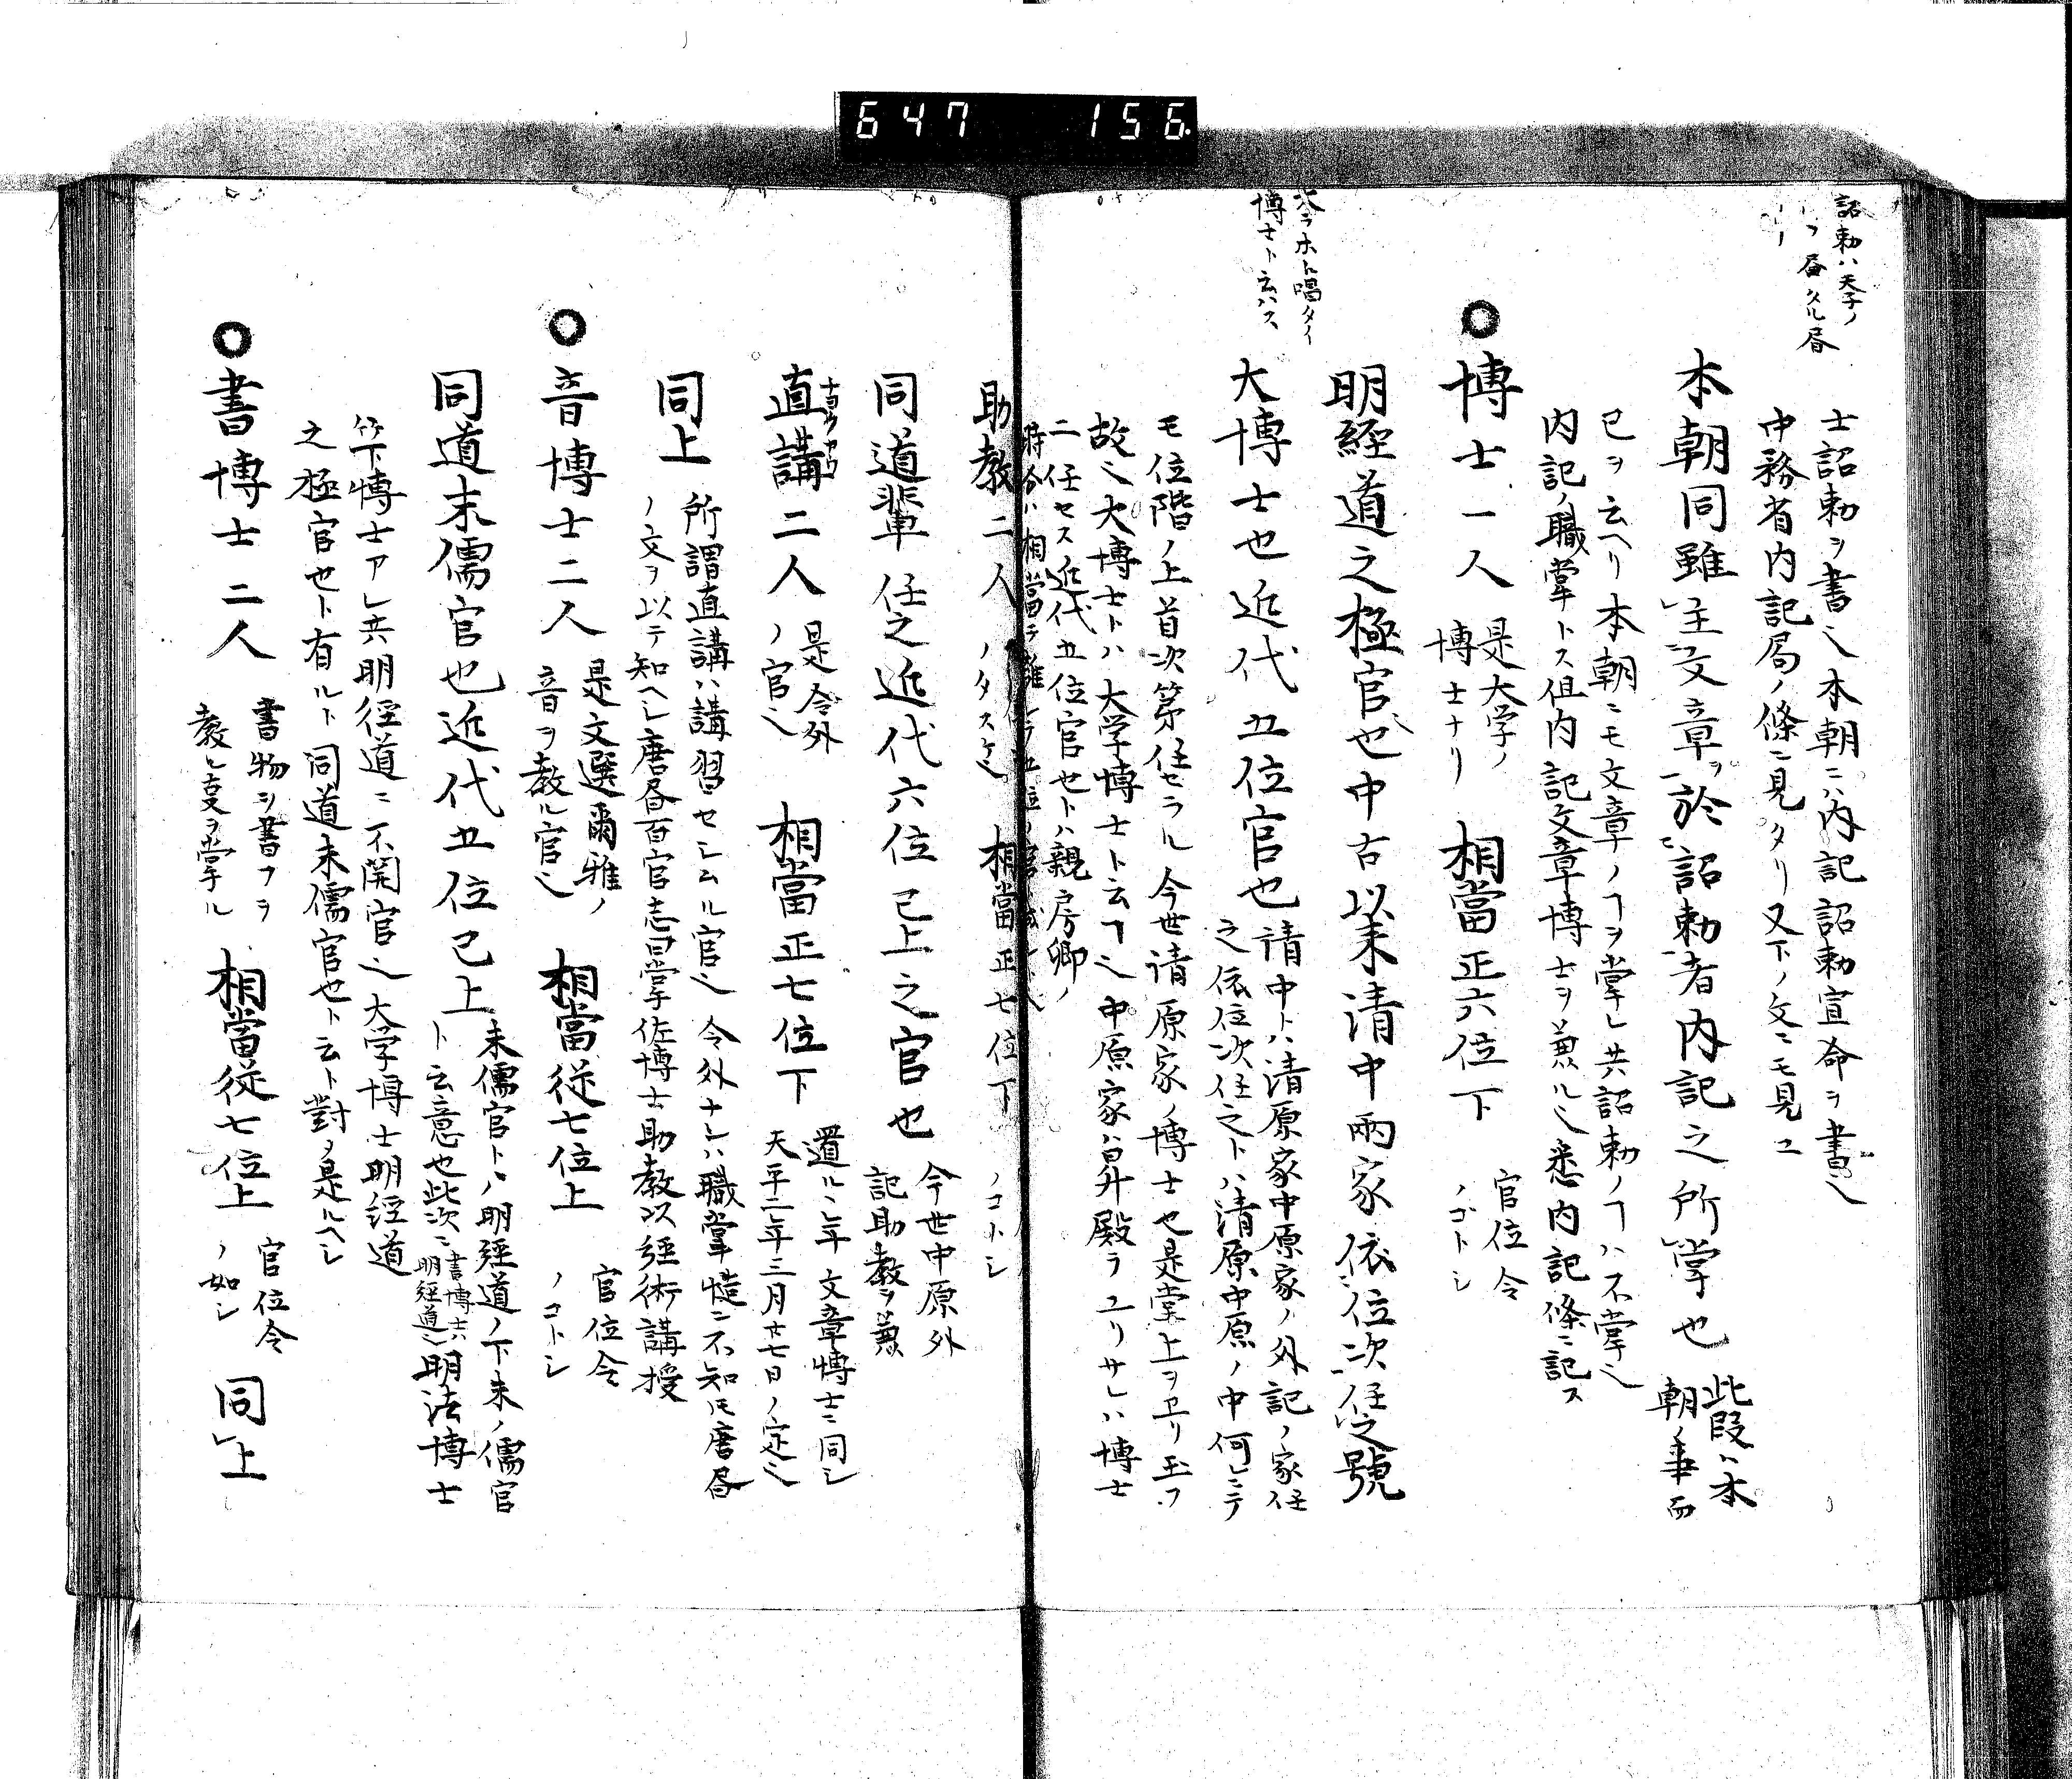 647 156
詔勅ハ天子ノ
士詔勅ヲ書ㇾ本朝ニハ内記詔勅宣命ヲ書ㇾ
中務省内記局ノ條ニ見タリ又下ノ文ニモ見ユ
本朝同雖主文章ヲ於詔勅者内記之所掌也
此段ハ本
朝ノ事而
已ヲ云ヘリ本朝ニモ文章ノヿヲ掌レ共詔勅ノヿハ不掌
内記ノ職掌トス但内記文章博士ヲ兼ル 悉内記條ニ記ス
博士一人
是大学ノ
博士ナリ
相當正六位下
官位令
ノゴトシ
明經道之極官也中古以来清中兩家依位次任之號
大ヲホト唱タイ
博士ト云ハス
大博士也近代五位官也
清中トハ清原家中原家ノ外記ノ家任
之依位次任之トハ清原中原ノ中何レニテ
モ位階ノ上首次第任セラル今世清原家ノ博士也是堂上ヲ
故ニ大博士トハ大学博士ト云ヿ 中原家ハ昇殿ヲユリサレハ博士
ニ任セス近代五位官也トハ親房卿ノ
助教二人
ノタスケ
相當正七位下
ノコトシ
同道輩任之近代六位已上之官也
今世中原外
記助教ヲ兼
直講二人
是令外
ノ官
相當正七位下
道ル 年文章博士ニ同シ
天平二年三月廿七日ノ定
同上
所謂直講ハ講習セシムル官 令外ナレハ職掌慥ニ不知 唐
ノ文ヲ以テ知ヘシ唐 百官志曰掌佐博士助教以經術講授
音博士二人
是文選爾雅ノ
音ヲ教ル官
相當從七位上
官位令
ノコトシ
同道末儒官也近代五位已上
末儒官トハ明經道ノ下末ノ儒官
ト云意也此次ニ書博士ハ明經道 明法博士
竿下博士アレ共明經道ニ不関官 大学博士明經道
之極官也ト有ルト同道末儒官也ト云ト對 是ルヘシ
書博士二人
書物ヲ書フヲ
教ル ヲ掌ル
相當從七位上
官位令
ノ如シ
同上